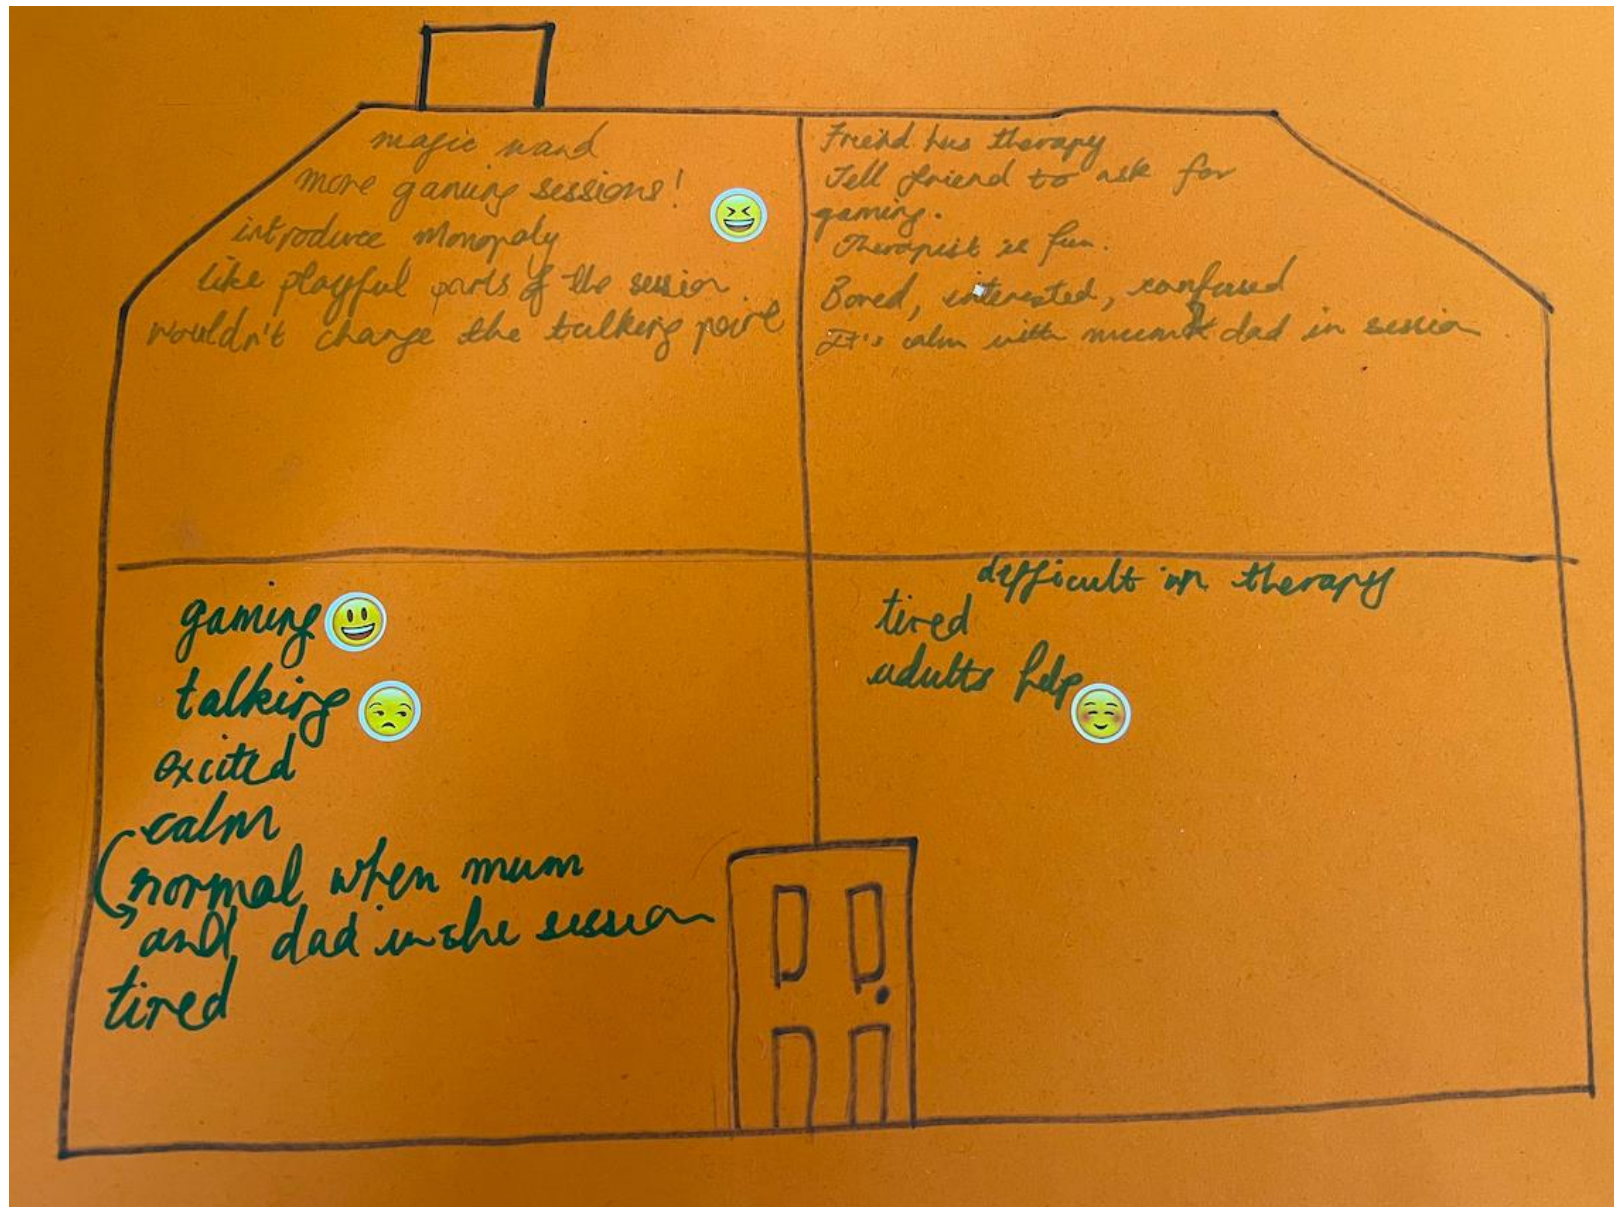 magic wand
more gaming sessions!
introduce Monopoly
like playful parts of the session
wouldn't change the talking point
Friend has therapy
Tell friend to ask for
gaming.
Therapist is fun.
Bored, interested, confused
It's calm with mum & dad in session
gaming
talking
excited
calm
normal when mum
and dad in the session
tired
difficult in therapy
tired
adults help